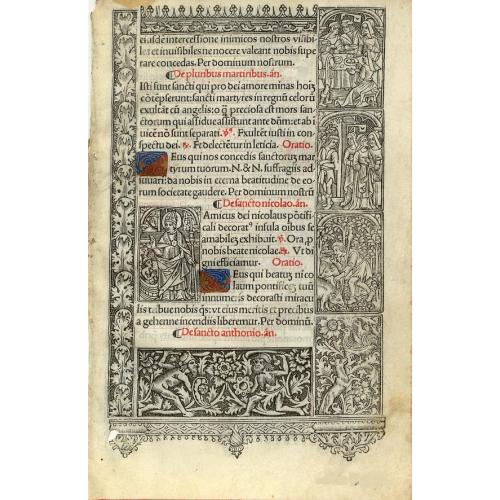 eiusde intercessione inimicos nostros visibi
les et inuisibiles ne nocere valeant nobis supe
rare concedas. Per dominum nostrum.
¶De pluribus martiribus. añ.
Isti sunt sancti qui pro dei amore minas hoiʒ
cōtēpserunt: sancti martyres in regnū celorū
exultāt cū angelis: o q̄ preciosa est mors san-
ctorum qui assidue assistunt ante dñm: et ab i
uicē nō sunt separati. ℣. Exultēt iusti in con-
spectu dei. ℟. Et delectētur in leticia. Oratio.
Deus qui nos concedis sanctoruʒ mar
tyrum tuorum. N. & N. suffragiis ad
iuuari: da nobis in eterna beatitudine de eo-
rum societate gaudere. Per dominum nostrū
¶De sancto nicolao. añ.
Amicus dei nicolaus pōtifi-
cali decoratꝰ insula oibus se
amabileʒ exhibuit. ℣. Ora p
nobis beate nicolae. ℟. Ut di
gni efficiamur. Oratio.
Deus qui beatuʒ nico
laum pontificeʒ tuū
innumeris decorasti miracu
lis tribue nobis q̄s: vt eius meritis et precibus
a gehenne incendiis liberemur. Per dominū.
¶De sancto anthonio. añ.